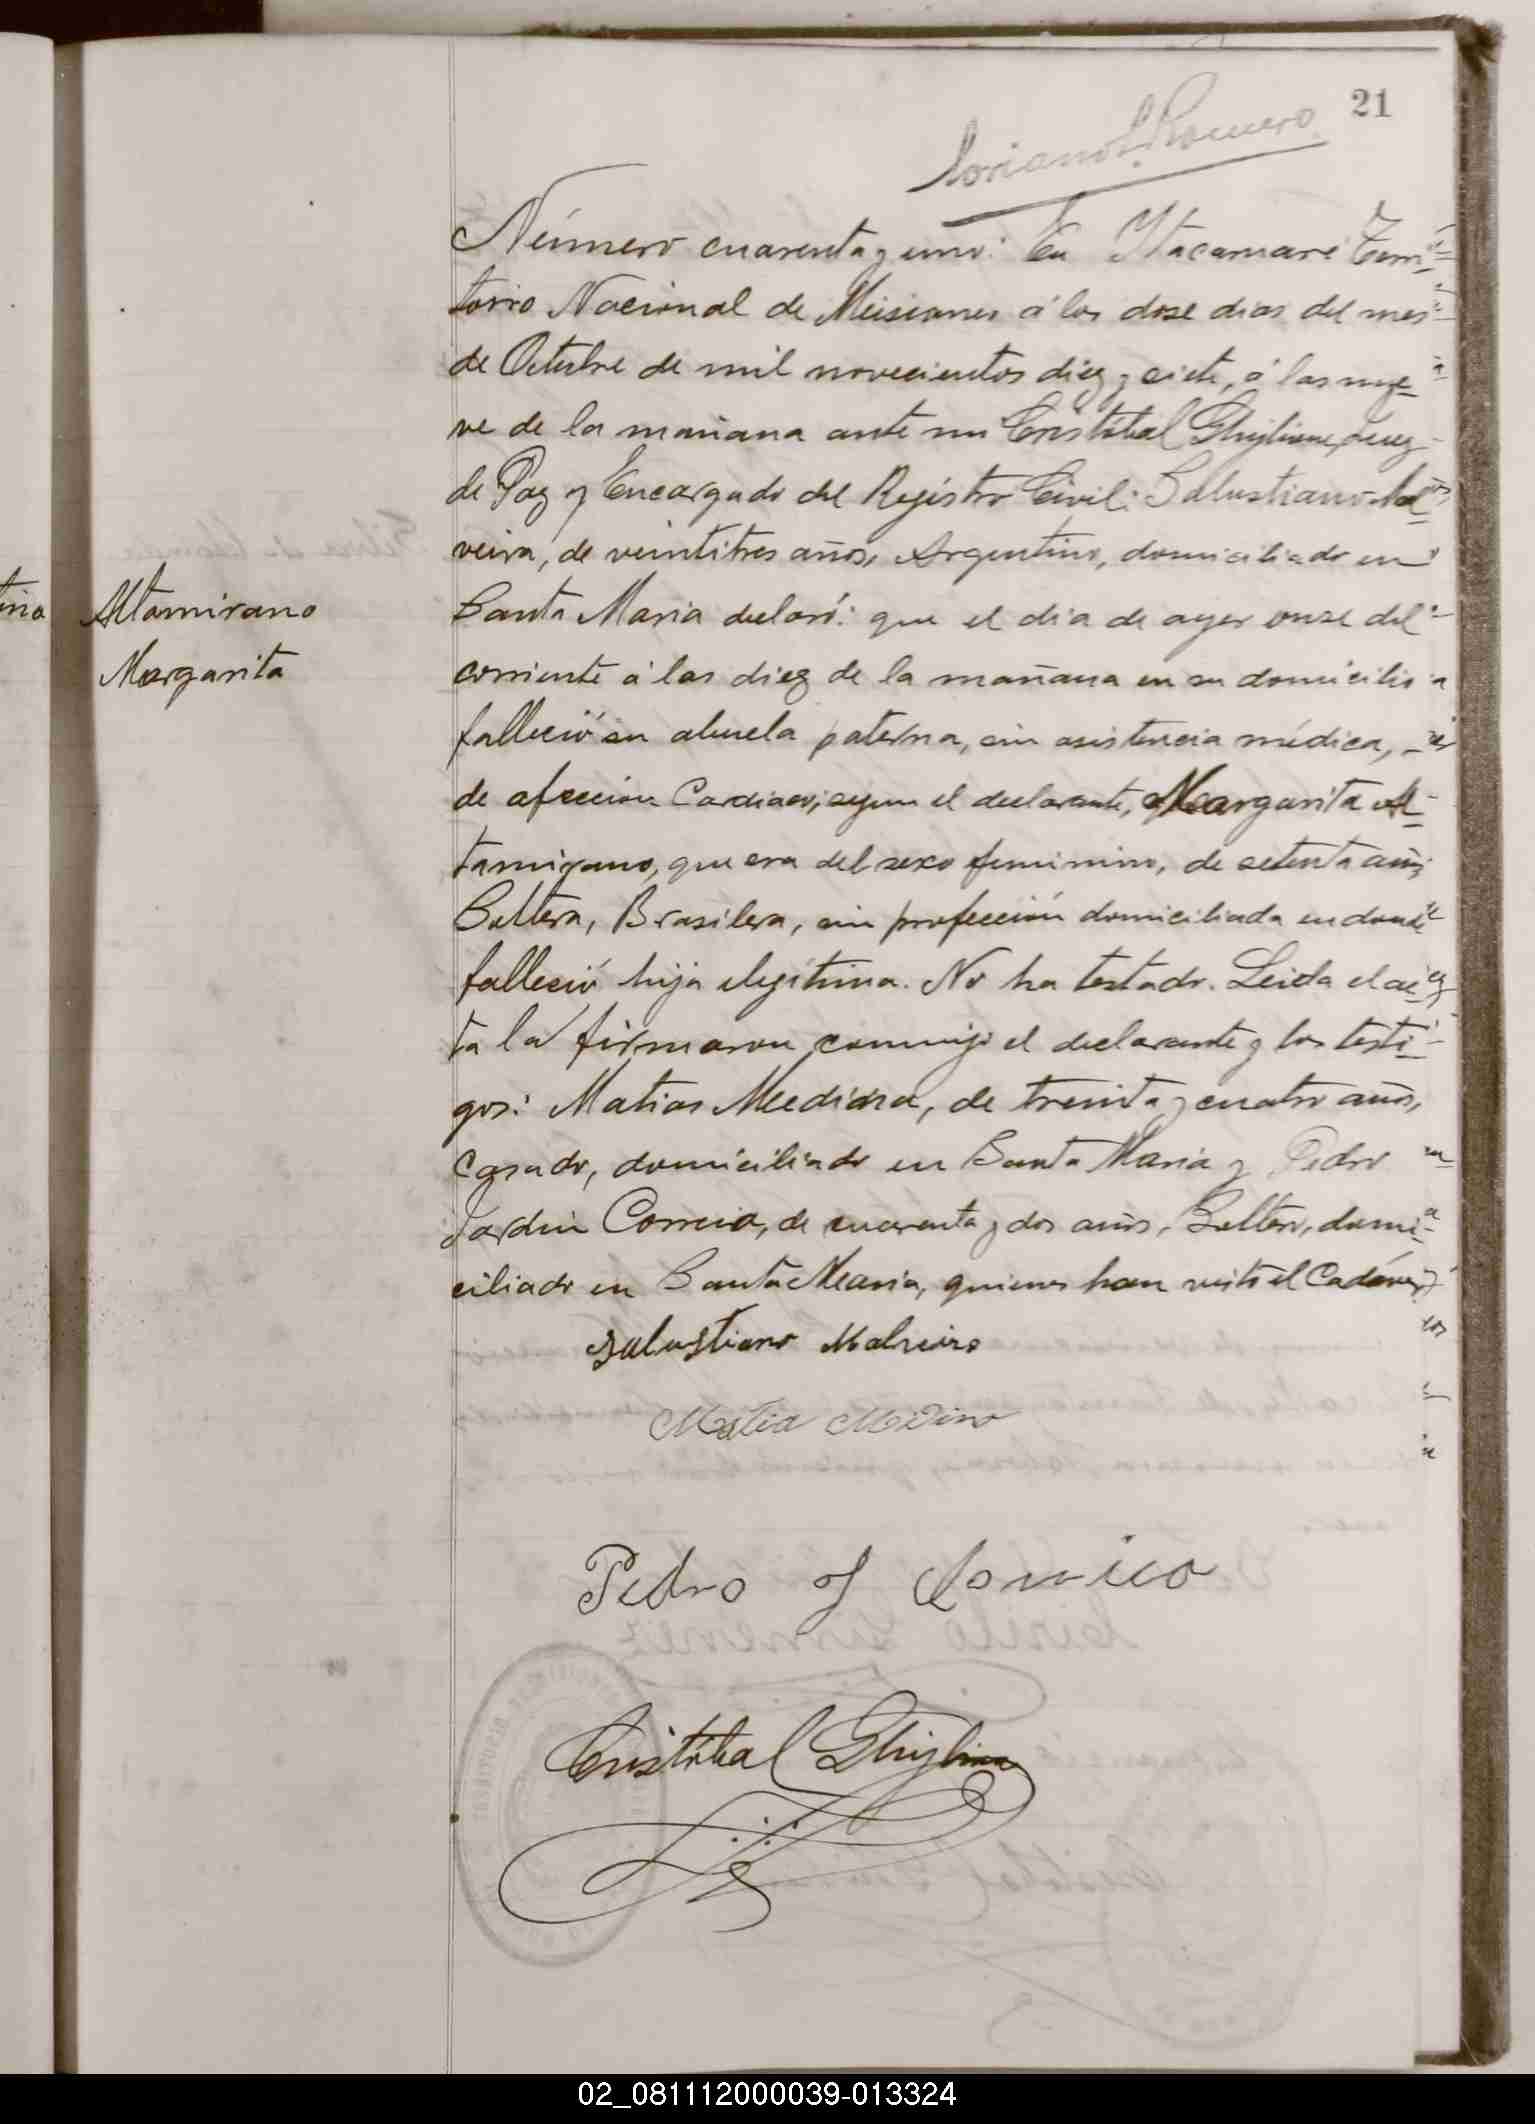 21
Soriano L. Romero
Número cuarenta y uno: En Itacaruaré Terri-
torio Nacional de Misiones á los dose dias del mes
de Octubre de mil novecientos diez y ciete, á las nue-
ve de la mañana ante mi Cristóbal Ghiglione, Juez
de Paz y Encargado del Registro Civil: Salustiano Mal-
veira, de veintitres años, Argentino, domiciliado en
Santa Maria declaró: que el dia de ayer onse del
Altamirano
Margarita
corriente á las diez de la mañana en su domicilio
falleció su abuela paterna, sin asistencia médica,
de afeccion Cardiaca, segun el declarante, Margarita Al-
tamirano, que era del sexo feminino, de setenta años
Soltera, Brasilera, sin profección domiciliada en donde
falleció hija ilegítima. No ha testado. Leida el ac-
ta la firmaron conmigo el declarante y los testi-
gos: Matias Medina, de treinta y cuatro años,
casado, domiciliado en Santa Maria y Pedro
Jardin Correia, de cuarenta y dos años, Soltero, domi-
ciliado en Santa Maria, quienes han visto el Cadáver
Salustiano Malveira
Matia Medina
Pedro J
Cristóbal Ghiglione
02_081112000039-013324